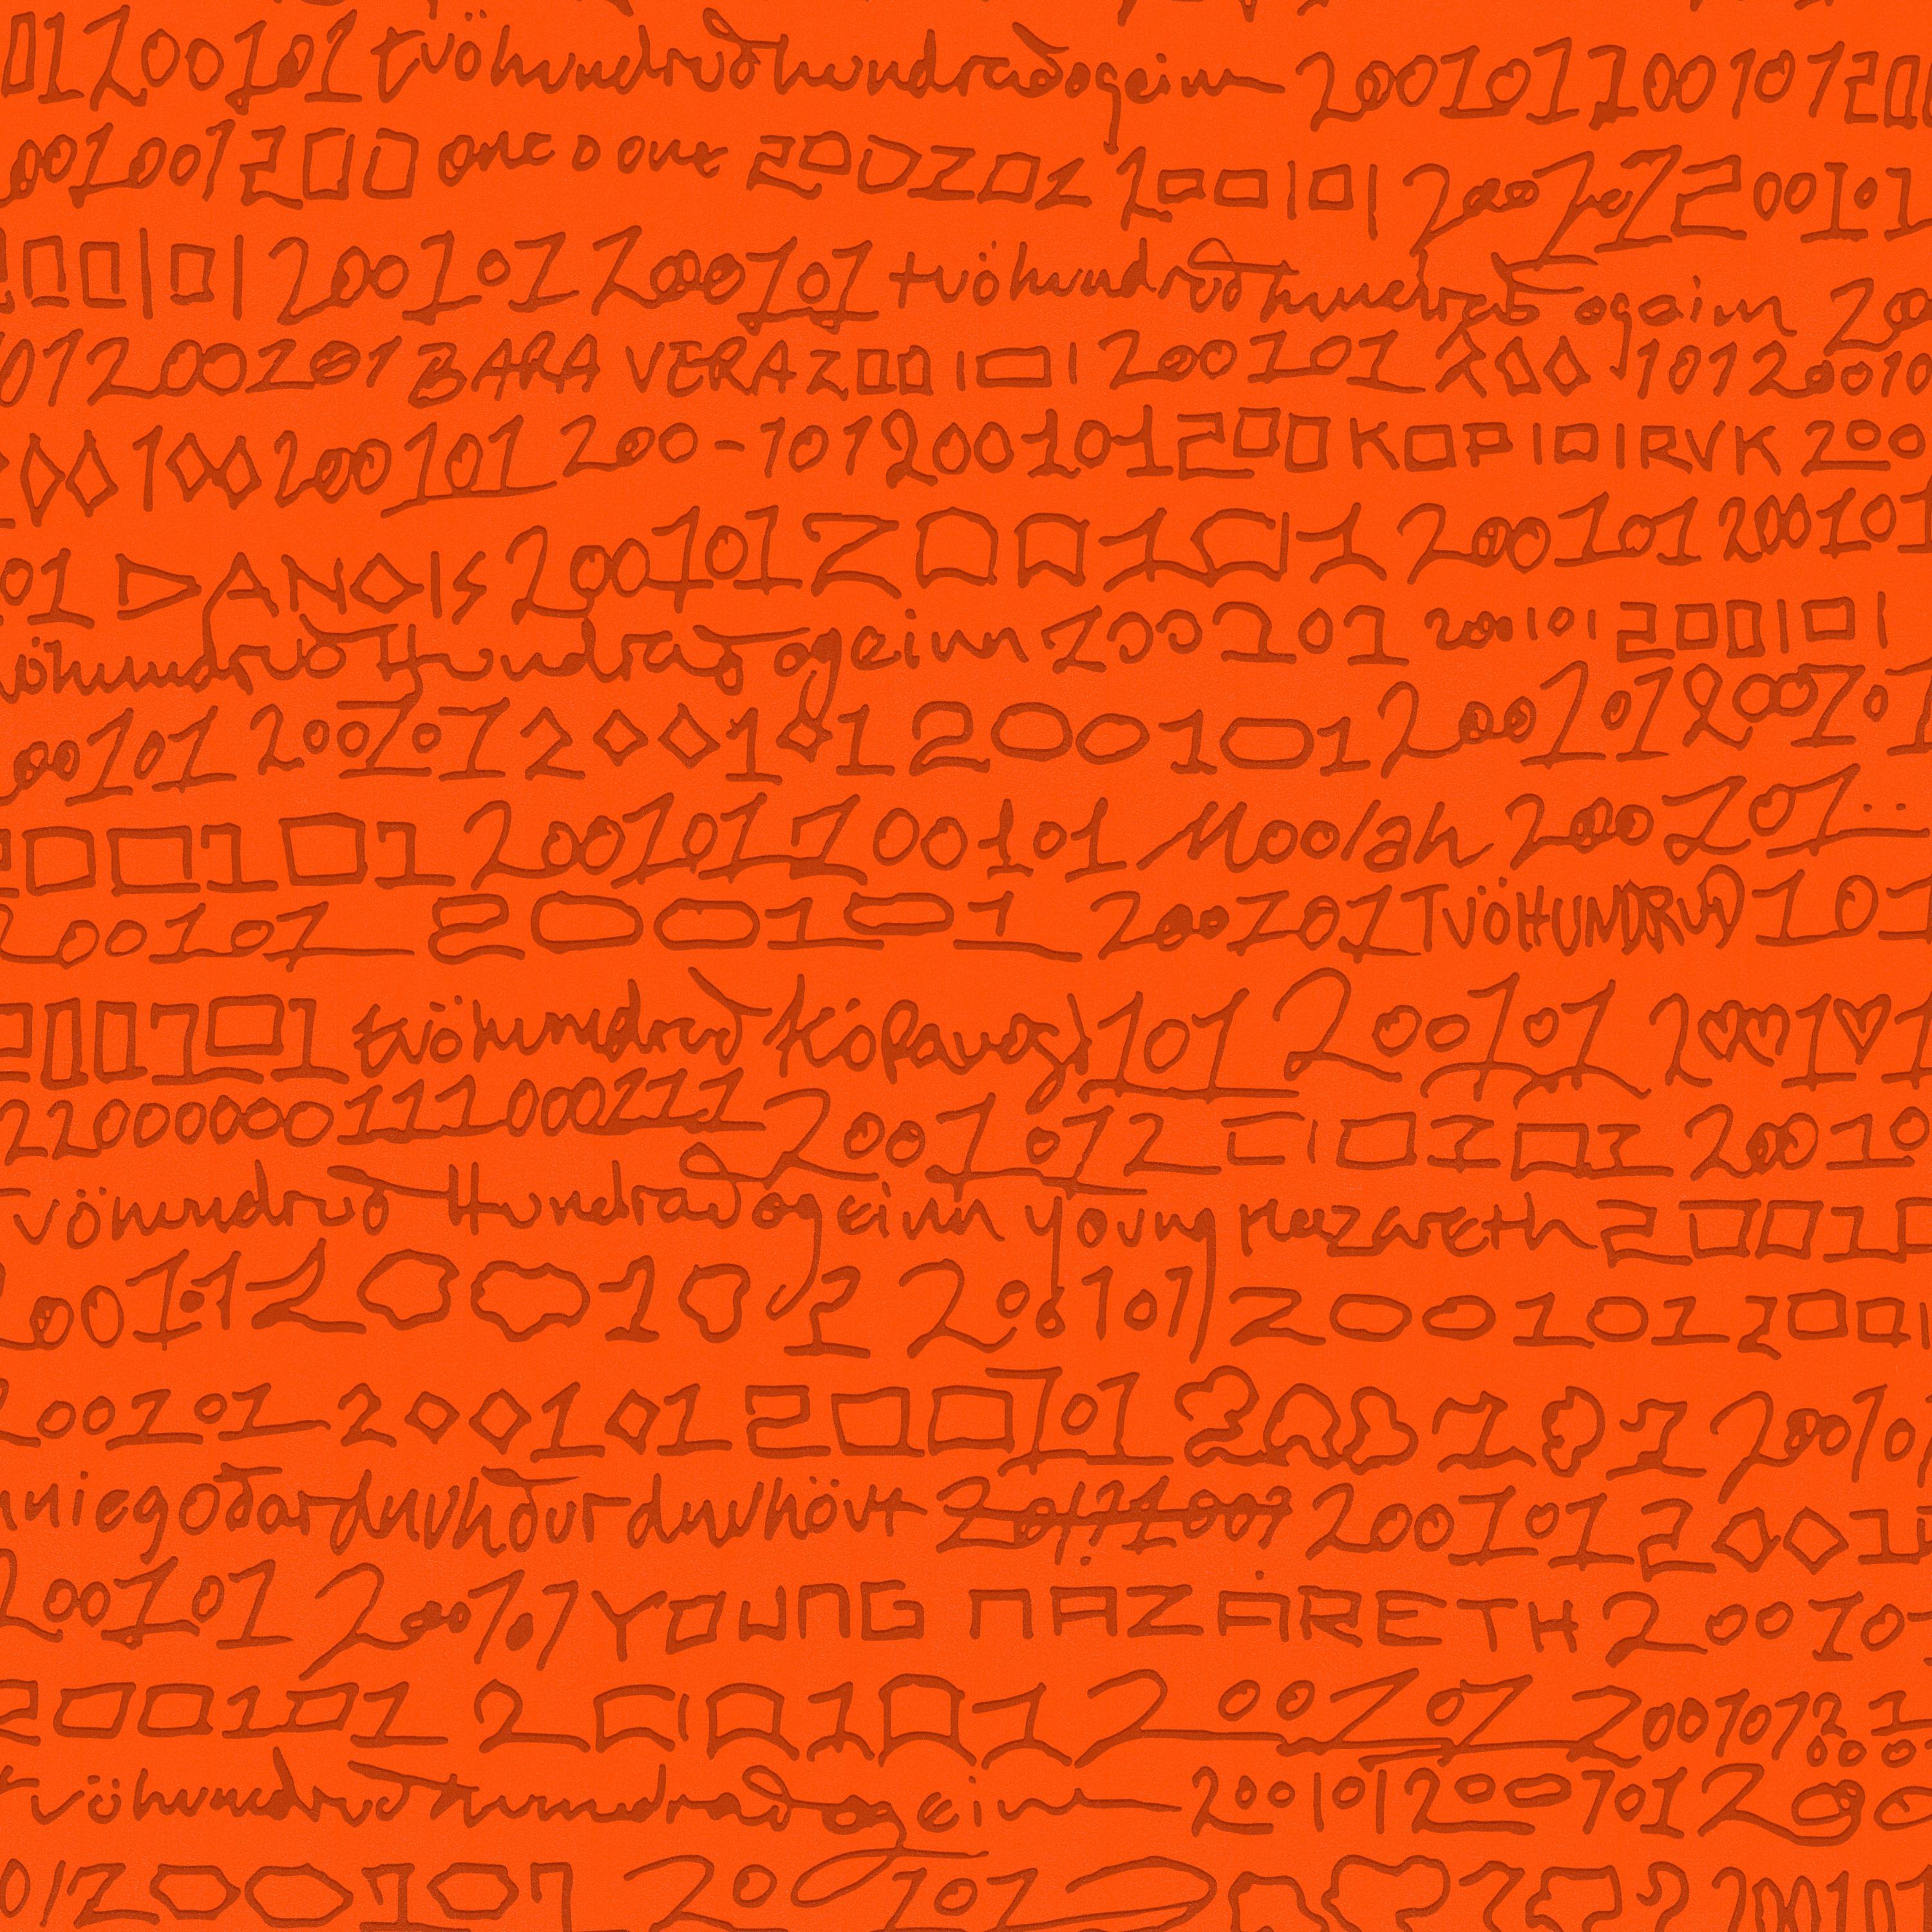 01200101 tvöhundruðhundraðogeinn 200101 200101 200
001001 200 one 0 one 200202 200101 200101 200101
200101 200101 200101 tvöhundruð hundrað ogeinn 200
101200101 BARA VERA 200101 200101 200101 20010
00100 200101 200-101 200101 200 KOP 101 RVK 200
01 DANOIS 200101 200101 200101 200101
vöhundruð Hundrað ogeinn 200101 200101 200101
00101 200101 200101 200101 200101 200101
200101 200101 200101 Moolah 200101..
200101 200101 200101 TVÖHUNDRUÐ 101
200101 tvöhundruð Kópavogs 101 200101 200101
22000000111000111 200101 200101 20010
tvöhundruð Hundraðogeinn young nazareth 20010
200101 200101 200101 200101 200
200101 200101 200101 200101 20010
200101 200101 2001
200101 200101 YOUNG NAZARETH 20010
200101 200101 200101 200101
tvöhundruð hundraðogeinn 200101 200101 200
01200101 200101 200101